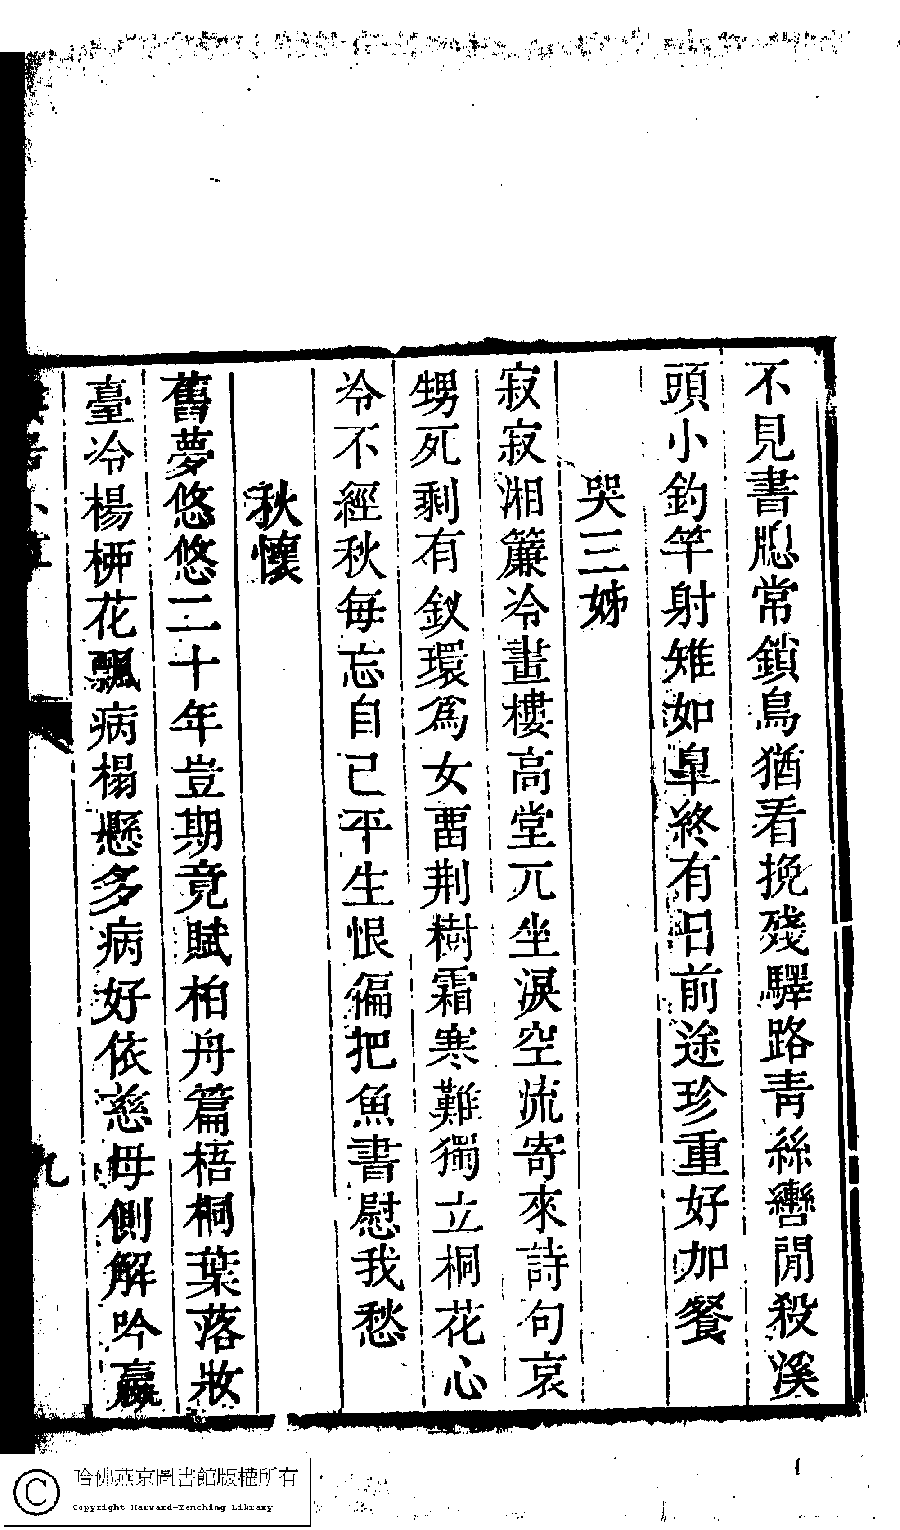 不見書䆫常鎖鳥猶看挽殘驛路青絲轡閒殺溪
頭小釣竿射雉如臯終有日前途珍重好加餐
哭三姊
寂寂湘簾冷畫樓高堂兀坐淚空流寄來詩句哀
甥死剩有釵環爲女畱荆樹霜寒難獨立桐花心
冷不經秋每忘自己平生恨偏把魚書慰我愁
秋懷
舊夢悠悠二十年豈期竟賦柏舟篇梧桐葉落妝
臺冷楊桺花飄病榻懸多病好依慈母側解吟嬴
九
哈佛燕京圖書館版權所有
Copyright Harvard-Yenching Library